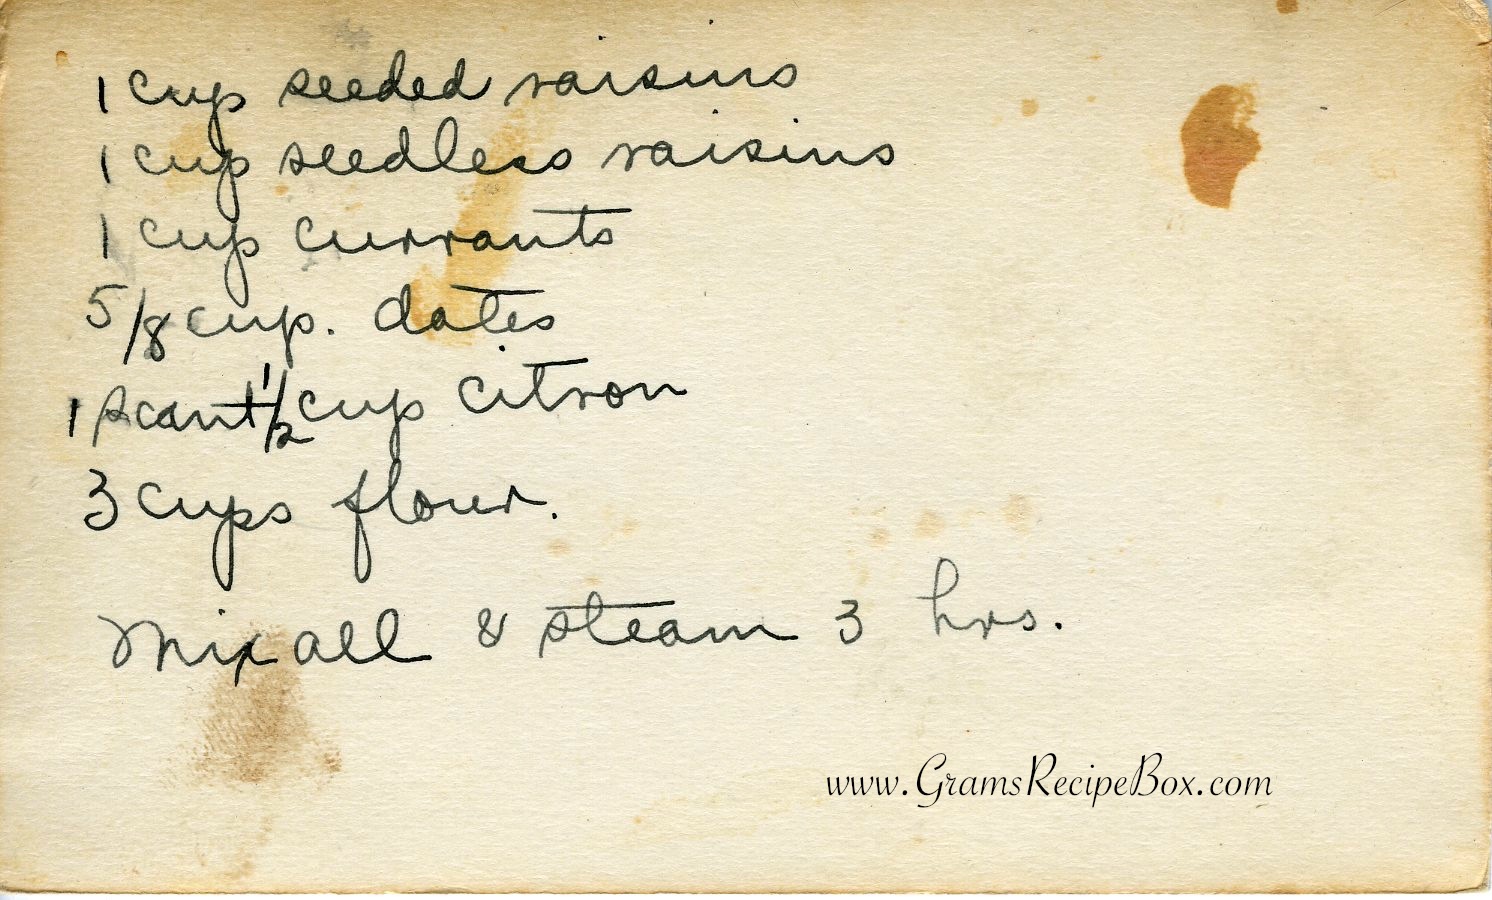 1 cup seeded raisins
1 cup seedless raisins
1 cup currants
5/8 cup. dates
1 scant 1/2 cup citron
3 cups flour.
Mix all & steam 3 hrs.
www.GramsRecipeBox.com